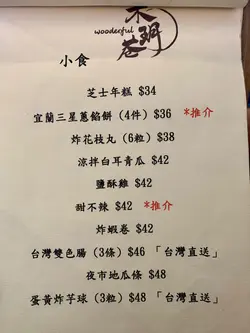 不玥巷
wooderful
小食
芝士年糕 $34
宜蘭三星蔥餡餅 (4件) $36 *推介
炸花枝丸 (6粒) $38
涼拌白耳青瓜 $42
鹽酥雞 $42
甜不辣 $42 *推介
炸蝦卷 $42
台灣雙色腸 (3條) $46 「台灣直送」
夜市地瓜條 $48
蛋黃炸芋球 (3粒) $48 「台灣直送」